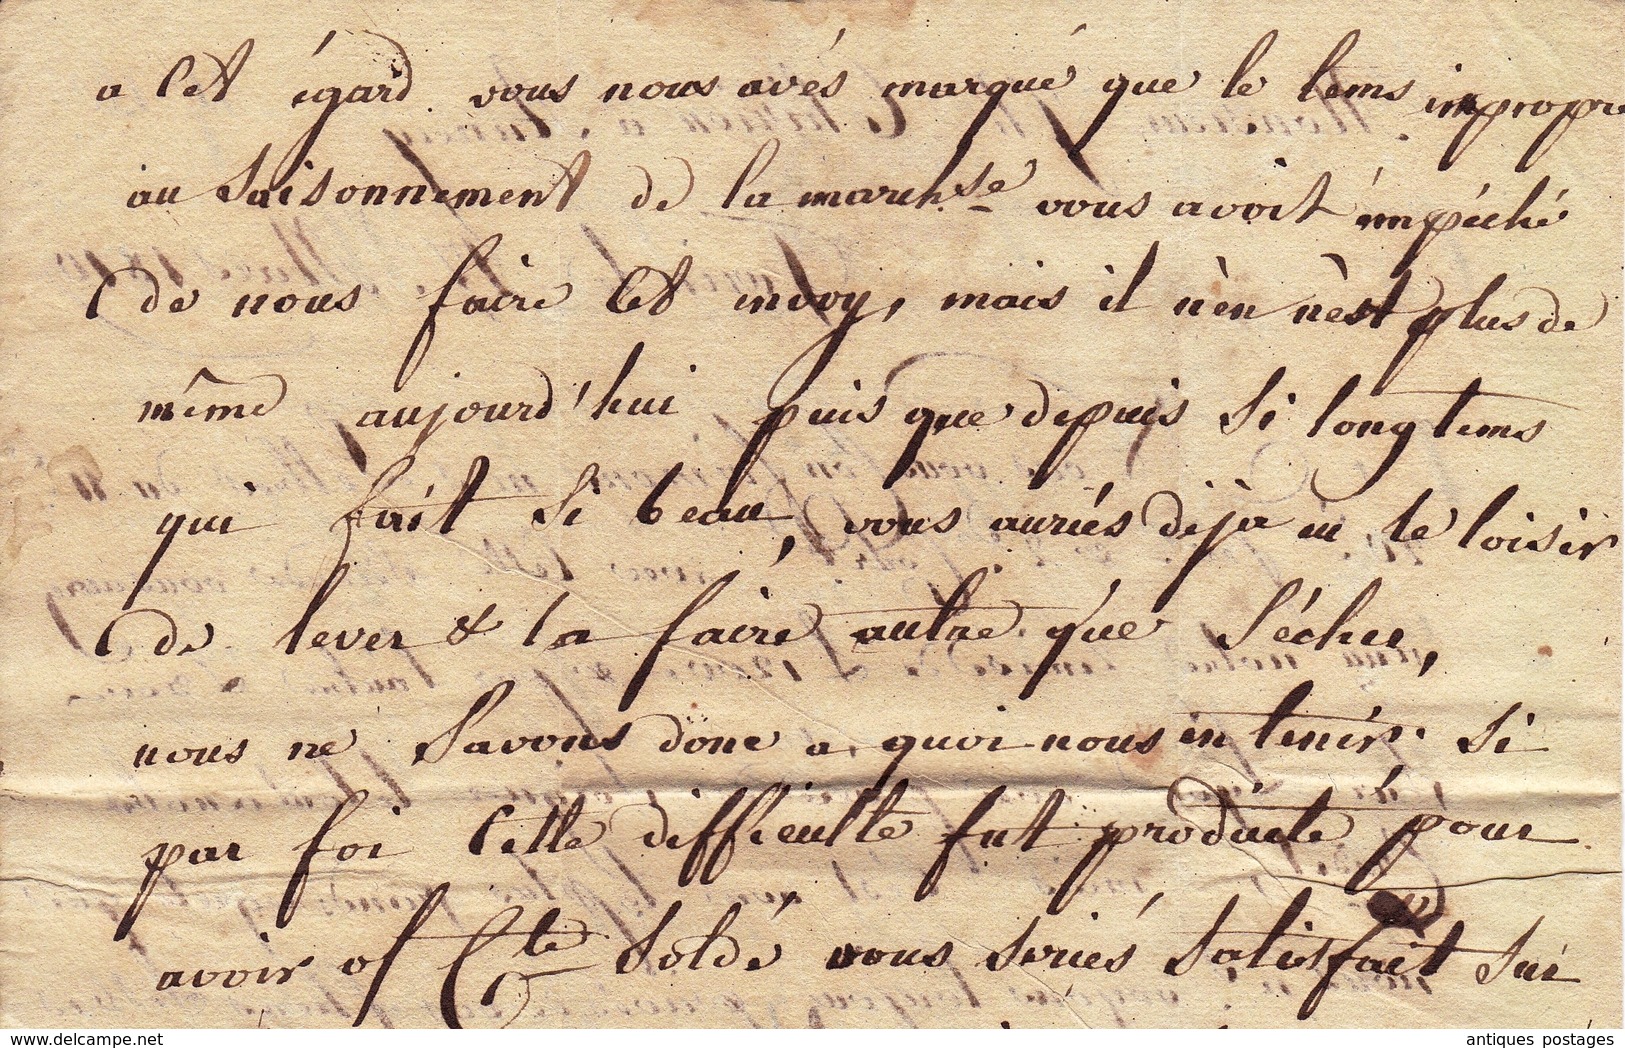 a Cet égard vous nous avés marqué que le tems impropre
au Saisonnement de la march.se vous avoit émpéché
de nous faire Cet envoy, mais il n'en n'est plus de
même aujourd'hui puis que depuis Si longtems
qui fait Si beau, vous auriés déja eu le loisir
de lever & la faire autre que Sécher,
nous ne Savons donc a quoi nous en tenir. Si
par foi Cette difficulté fut producte pour
avoir Cte Soldé vous seriés Satisfait Sur
antiques postages
www.delcampe.net